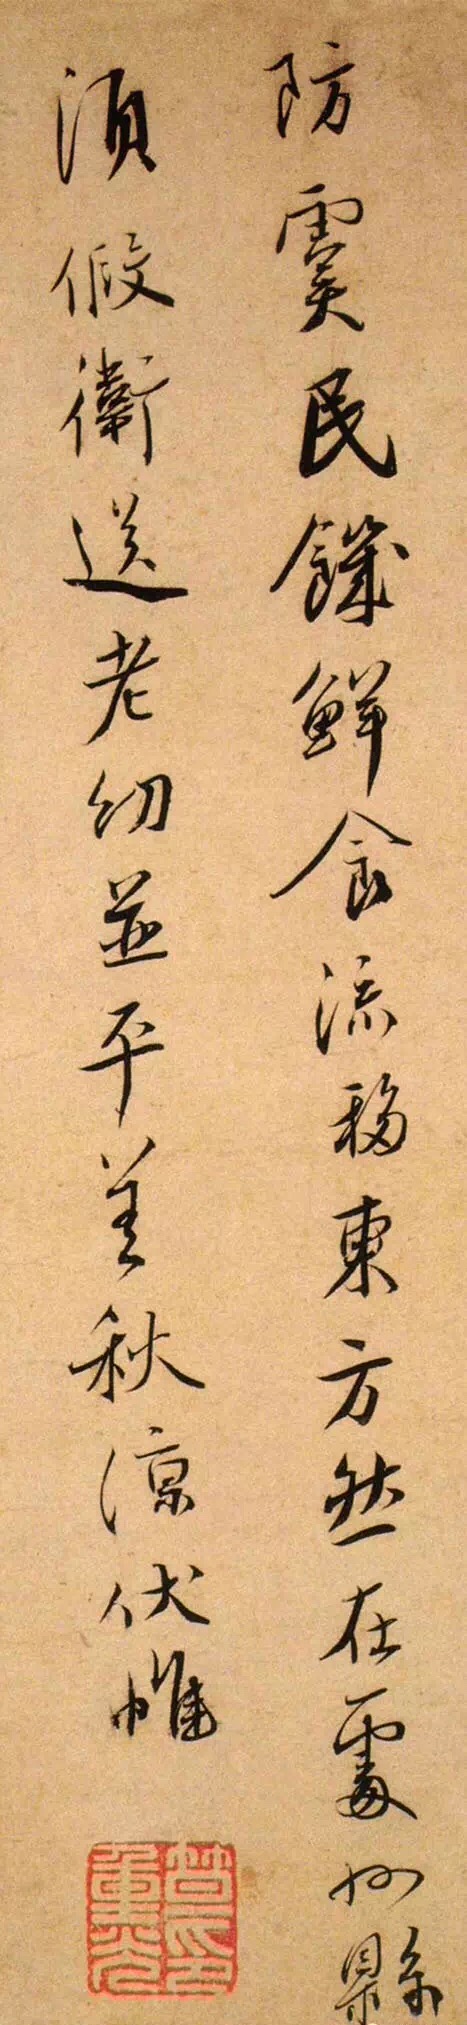 防虞民饑鮮食流移東方然在處州縣
須假衛送老幼並平善秋涼伏惟